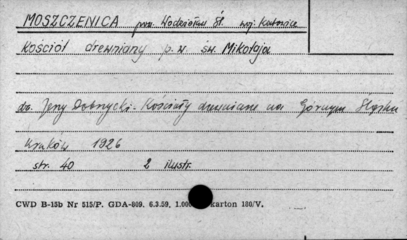 MOSZCZENICA pow. Wodzisław Śl. woj. Katowice
Kościół drewniany p.w. św. Mikołaja
dr. Jerzy Dobrzycki - Kościoły drewniane na Górnym Śląsku
Kraków 1926
str. 40 2 ilustr.
CWD B-15b Nr 315/P. GDA-809. 6.3.59. 1.000 karton 180/V.